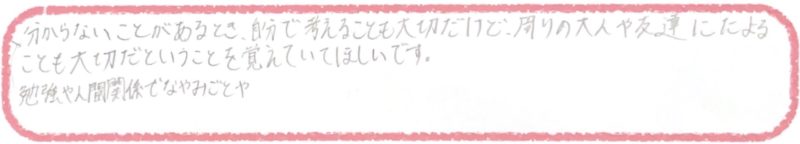 分からないことがあるとき、自分で考えることも大切だけど、周りの大人や友達にたよる
ことも大切だということを覚えていてほしいです。
勉強や人間関係でなやみごとや